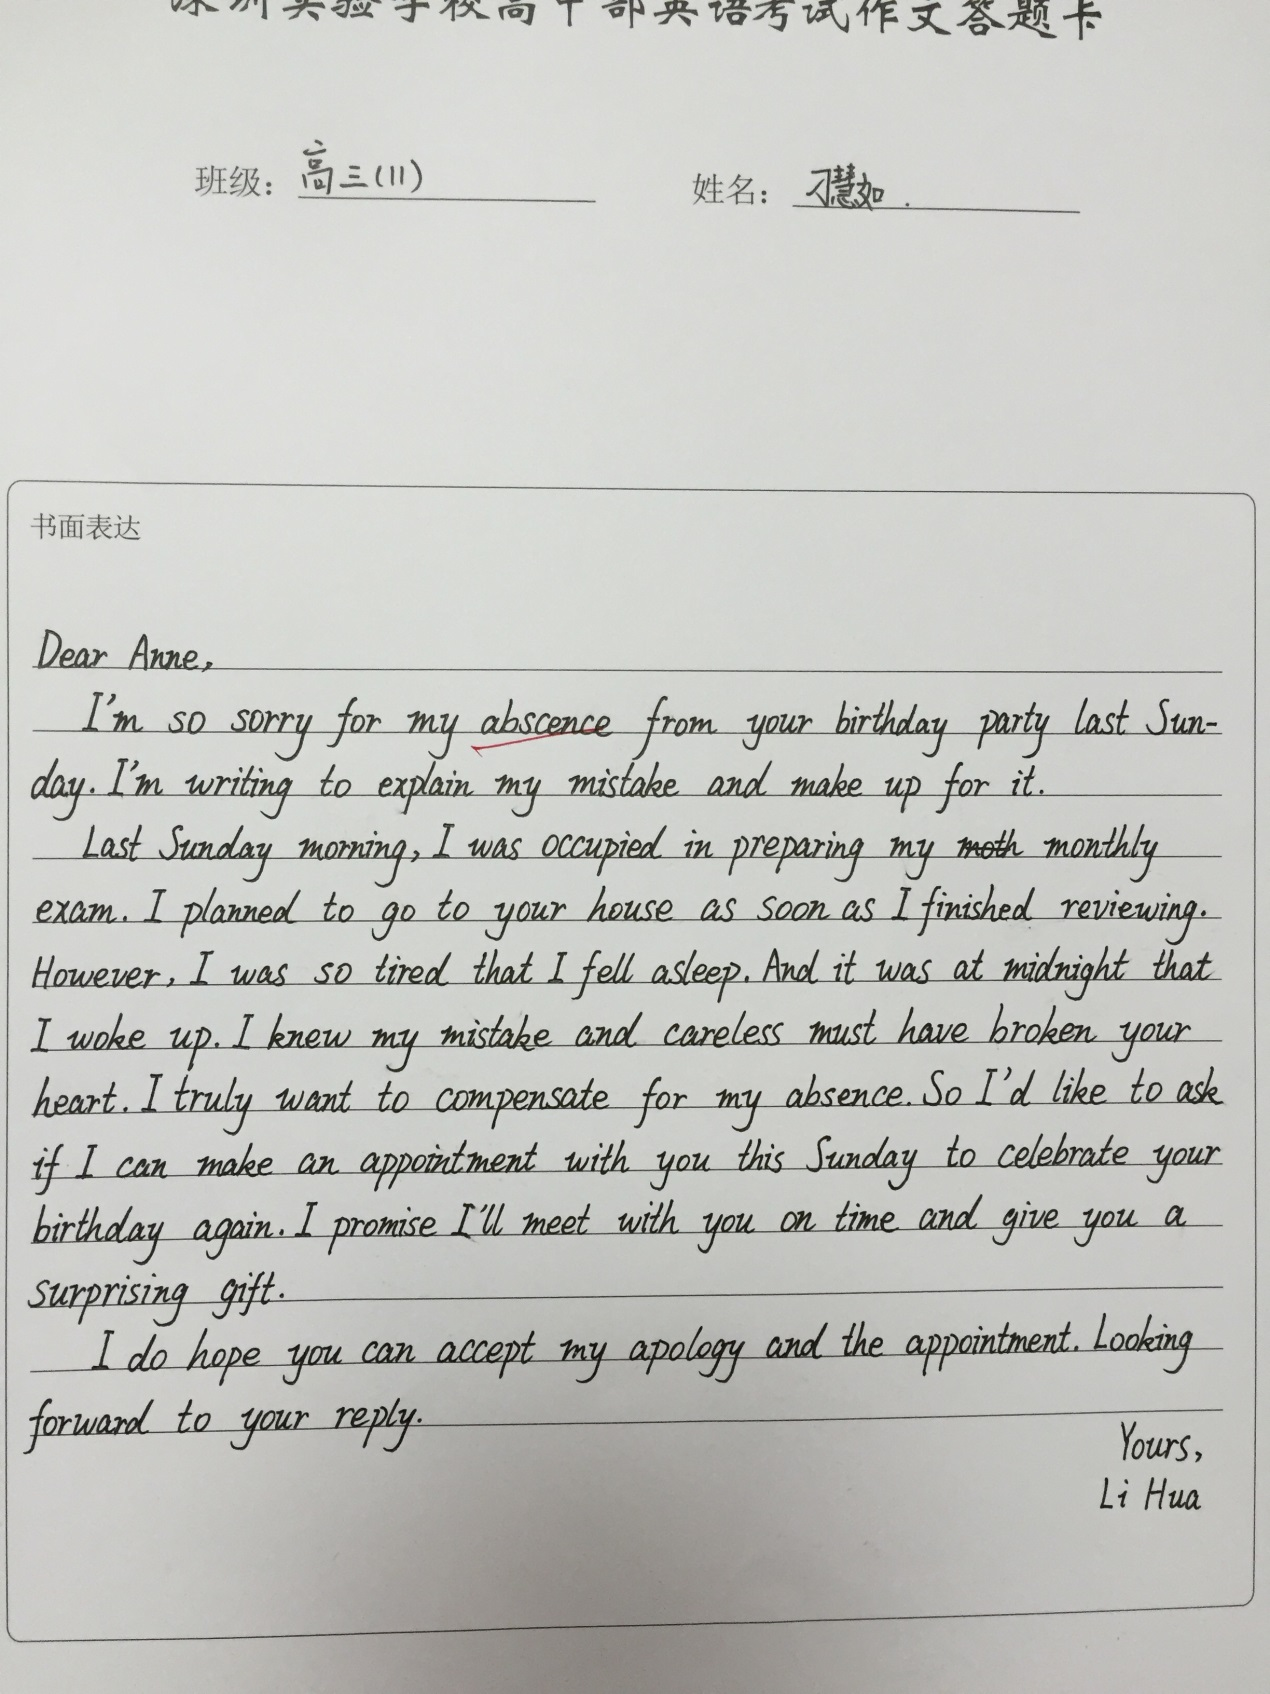 深圳实验学校高中部英语考试作文答题卡
班级: 高三(11) 姓名: 刁慧如.
书面表达
Dear Anne,
I'm so sorry for my abscence from your birthday party last Sun-
day. I'm writing to explain my mistake and make up for it.
Last Sunday morning, I was occupied in preparing my moth monthly
exam. I planned to go to your house as soon as I finished reviewing.
However, I was so tired that I fell asleep. And it was at midnight that
I woke up. I knew my mistake and careless must have broken your
heart. I truly want to compensate for my absence. So I'd like to ask
if I can make an appointment with you this Sunday to celebrate your
birthday again. I promise I'll meet with you on time and give you a
surprising gift.
I do hope you can accept my apology and the appointment. Looking
forward to your reply.
Yours,
Li Hua